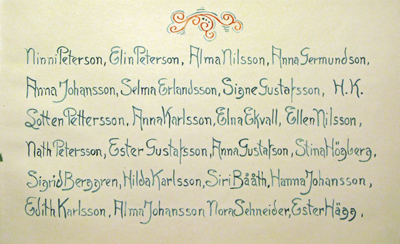 Ninni Peterson, Elin Peterson, Alma Nilsson, Anna Germundson,
Anna Johansson, Selma Erlandsson, Signe Gustafsson, H.K.
Lotten Pettersson, Anna Karlsson, Elna Ekvall, Ellen Nilsson,
Nath Petersson, Ester Gustafsson, Anna Gustafson, Stina Högberg.
Sigrid Berggren, Hilda Karlsson, Siri Bååth, Hanna Johansson,
Edith Karlsson, Alma Johansson, Nora Schneider, Ester Hägg,